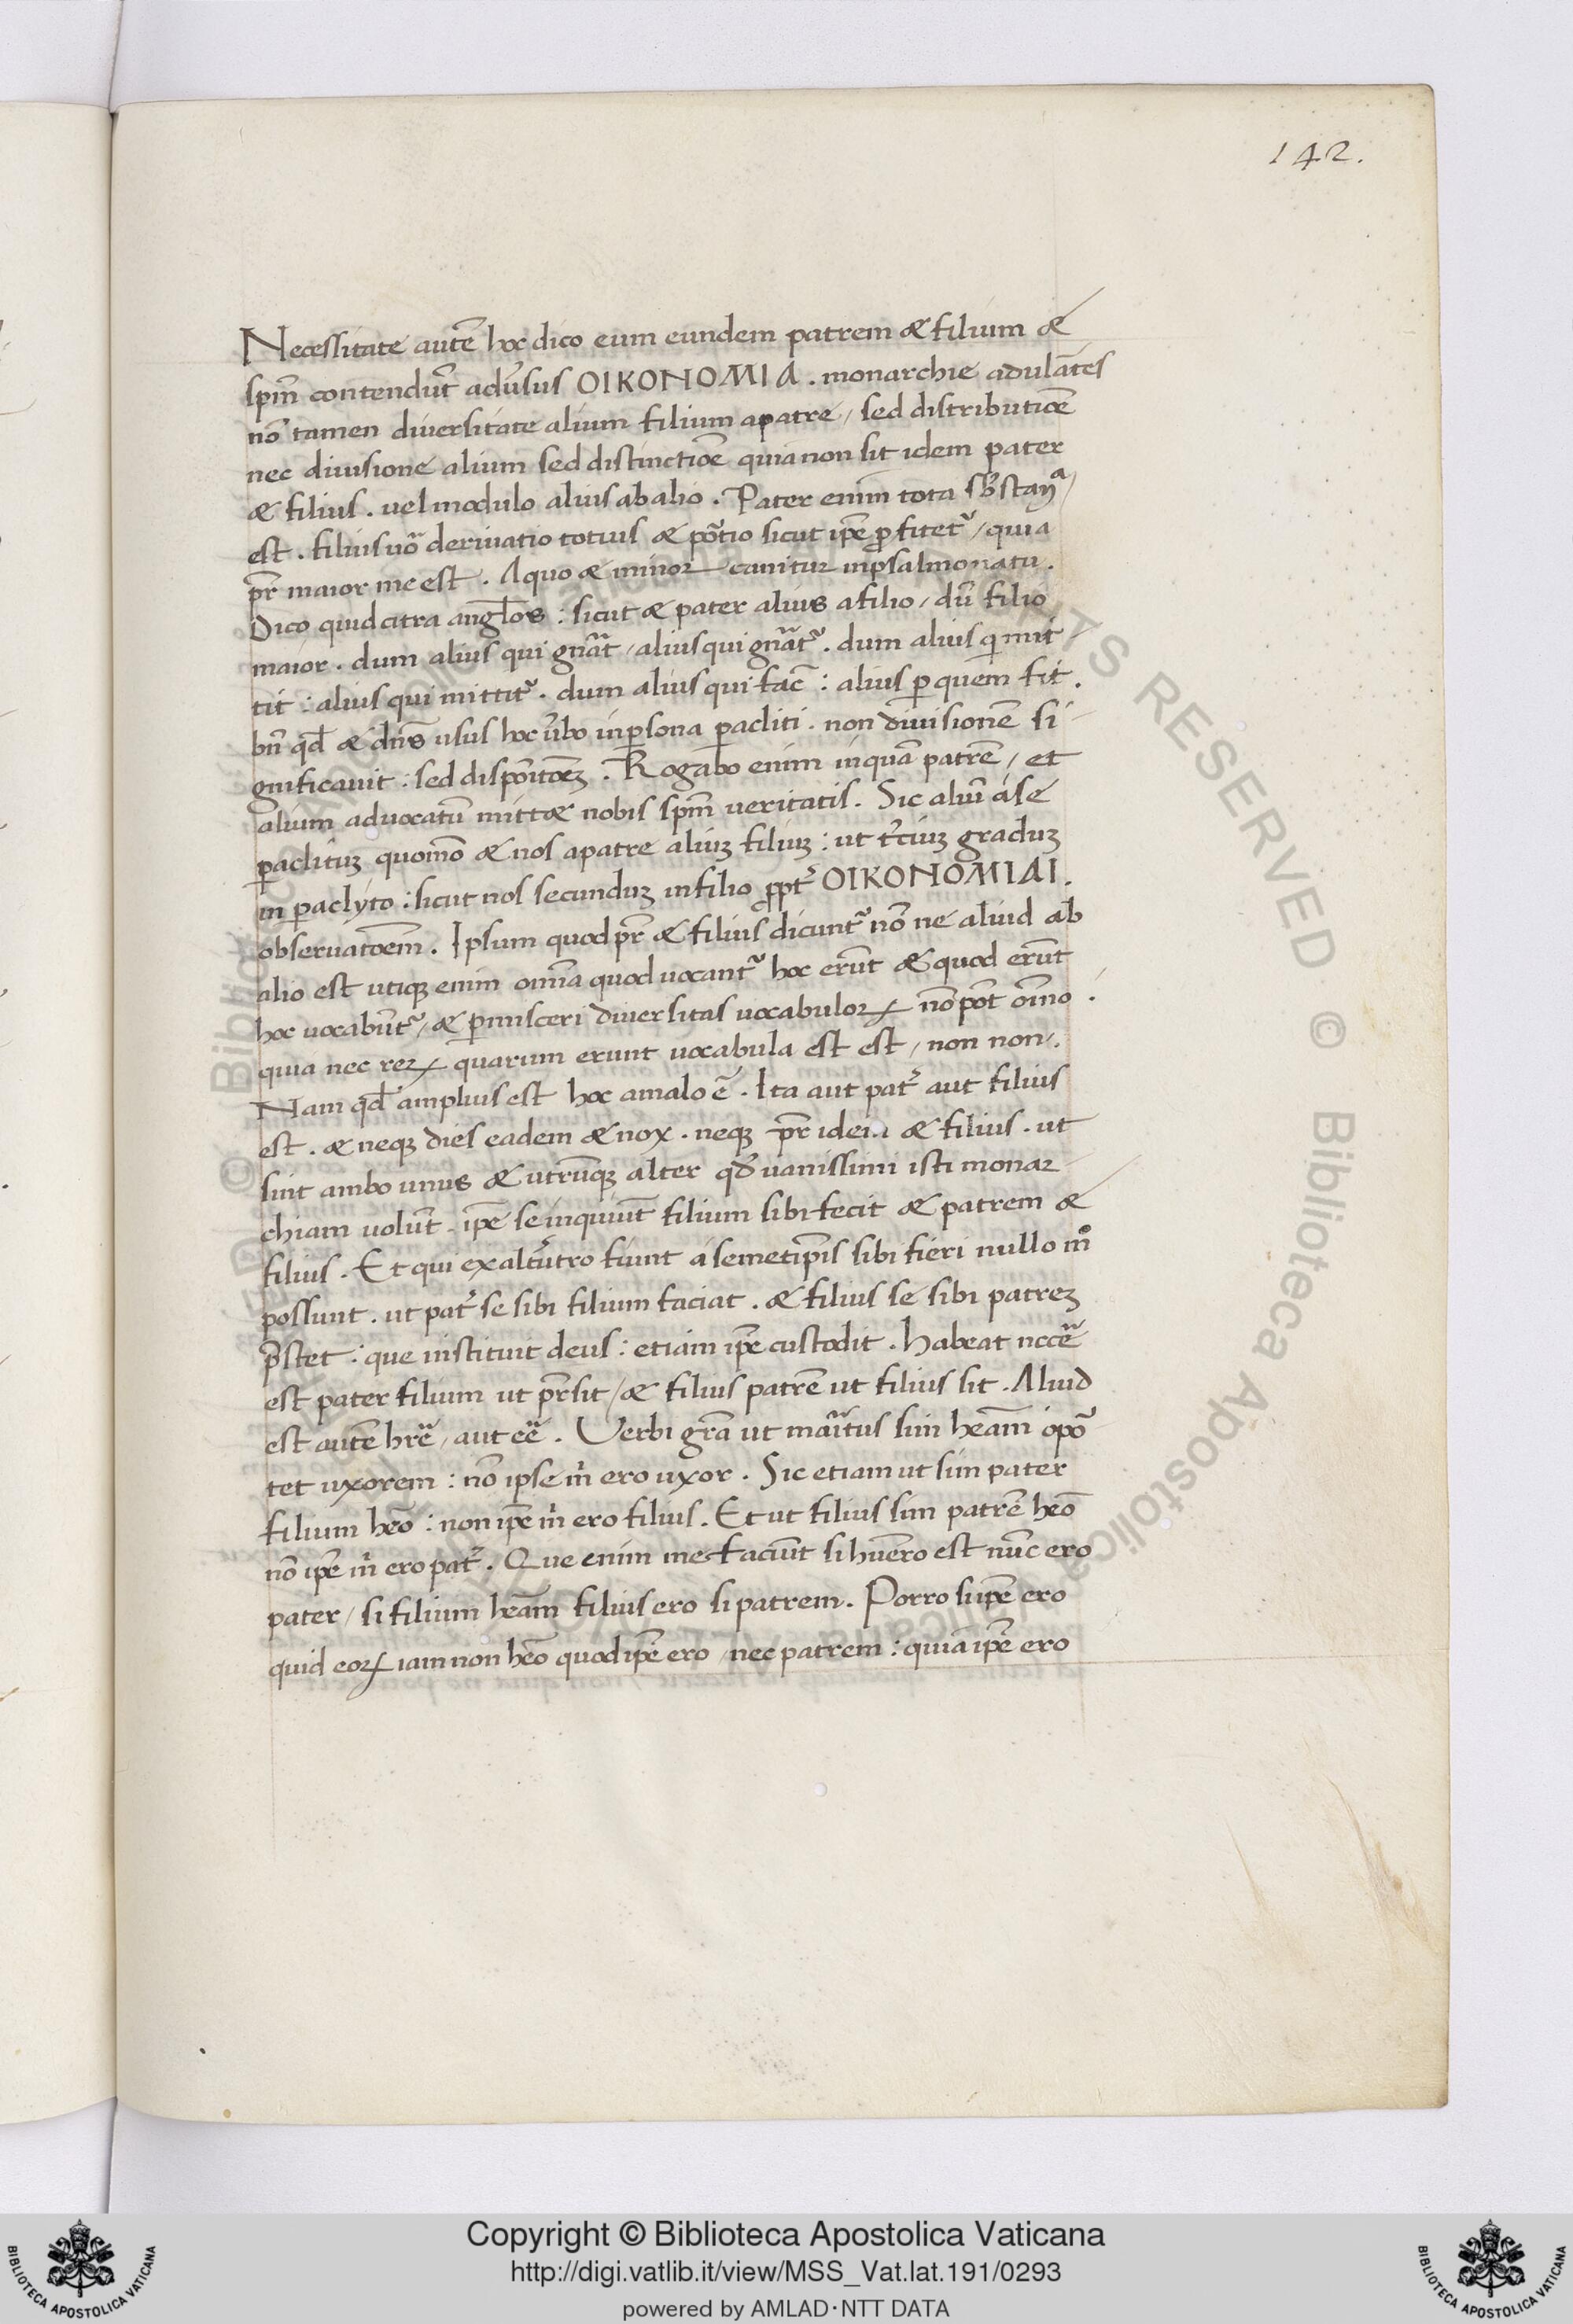 142.
Necessitate autẽ hoc dico eum eundem patrem & filium &
spm̃ contendũt adũsus OIKONOMIA . monarchie adulãtes
nõ tamen diuersitate alium filium apatre / sed distributiõe
nec diuisione alium sed distinctiõe quia non sit idem pater
& filius . uel modulo alius ab alio . Pater enim tota
est . filius uõ deriuatio totius & põtio sicut ip̃e ꝓfitet᷑ / quia
pr̃ maior me est . A quo & minor canitur in psalmo
Dico quid citra angl̃os : sicut & pater alius a filio / dũ filio
maior . dum alius qui gñat / alius qui gñat᷑ . dum alius qi mit-
tit : alius qui mittit᷑ . dum alius qui fac̃ : alius ꝑ quem fit .
bñ qđ & dñs usus hoc ũbo in ꝑsona ꝑacliti . non diuisionẽ si-
gnificauit : sed dispõitõeʒ . Rogabo enim inquã patrẽ / et
alium aduocatũ mitt& nobis spm̃ ueritatis . Sic aliũ a se
ꝑaclituʒ quomõ & nos apatre aliuʒ filiuʒ : ut t̃ciuʒ graduʒ
in ꝑaclyto : sicut nos secunduʒ in filio ꝓpt᷑ OIKONOMIAI .
obseruatõem . Ipsum quod pr̃ & filius dicunt᷑ nõ ne aliud ab
alio est utiqʒ enim om̃ia quod uocant᷑ hoc erũt & quod erũt
hoc uocabũt᷑ / & ꝑmisceri diuersitas uocabuloꝝ nõ põt om̃o .
quia nec reꝝ quarum erunt uocabula est est / non non .
Nam qđ amplius est hoc amalo ẽ . Ita aut pat᷑ aut filius
est . & neqʒ dies eadem & nox . neqʒ pr̃ idem & filius . ut
sint ambo unus & utrũqʒ alter qđ uanissimi isti monar-
chiam uolũt . ip̃e se inquiũt filium sibi fecit & patrem &
filius . Et qui ex altũtro fiunt a semetip̃is sibi fieri nullo mº
possunt . ut pat᷑ se sibi filium faciat . & filius se sibi patreʒ
p̃stet : que instituit deus : etiam ip̃e custodit . Habeat nccẽ
est pater filium ut pr̃ sit / & filius patrẽ ut filius sit . Aliud
est autẽ hr̃e / aut eẽ . Verbi gr̃a ut maritus sim heãm opõ
tet uxorem : nõ ipse m̃ ero uxor . Sic etiam ut sim pater
filium heõ : non ip̃e m̃ ero filius . Et ut filius sim patrẽ heõ
nõ ip̃e m̃ ero pat᷑ . Que enim me faciũt si huero est nũc ero
pater / si filium heãm filius ero si patrem . Porro si ip̃e ero
quid eoꝝ iam non heõ quod ip̃e ero / nec patrem : quia ip̃e ero
Copyright © Biblioteca Apostolica Vaticana
http://digi.vatlib.it/view/MSS_Vat.lat.191/0293
powered by AMLAD·NTT DATA
BIBLIOTECA APOSTOLICA VATICANA
BIBLIOTECA APOSTOLICA VATICANA